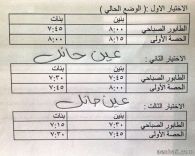 الاختيار الاول : ( الوضع الحالي )
بنين بنات
الطابور الصباحي ٨:٠٠ ٧:٤٥
الحصة الأولى ٨:١٥ ٨:٠٠
الاختيار الثاني :
بنين بنات
الطابور الصباحي ٧:٤٥ ٧:٣٠
الحصة الأولى ٨:٠٠ ٧:٤٥
الاختيار الثالث :
بنين بنات
الطابور الصباحي ٧:٣٠ ٧:١٥
الحصة الأولى ٧:٤٥ ٧:٣٠